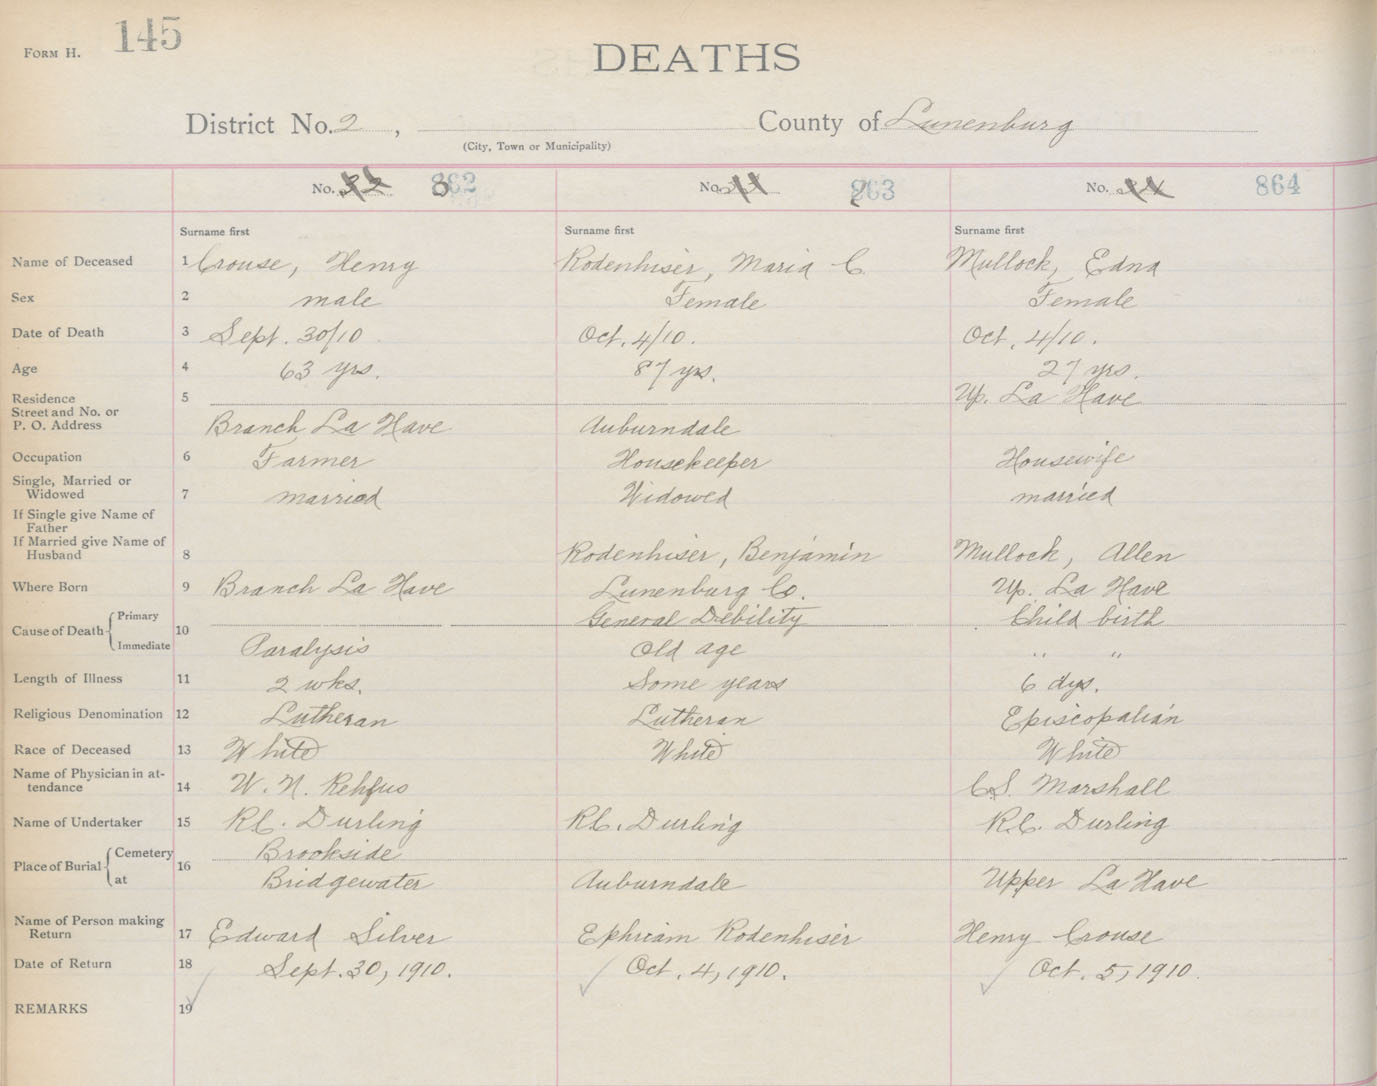 FORM H. 145
DEATHS
District No. 2 , County of Lunenburg
(City, Town or Municipality)
No. 862 No. 863 No. 864
Surname first Surname first Surname first
Name of Deceased 1 Crouse, Henry Rodenhiser, Maria C Mullock, Edna
Sex 2 male Female Female
Date of Death 3 Sept. 30/10 Oct. 4/10. Oct. 4/10.
Age 4 63 yrs. 87 yrs. 27 yrs.
Residence 5 Up. La Have
Street and No. or
P. O. Address Branch La Have Auburndale
Occupation 6 Farmer Housekeeper Housewife
Single, Married or
Widowed 7 married Widowed married
If Single give Name of
Father
If Married give Name of
Husband 8 Rodenhiser, Benjamin Mullock, Allen
Where Born 9 Branch La Have Lunenburg Co. Up. La Have
Cause of Death 10 Primary General Debility Child birth
Immediate Paralysis Old age " "
Length of Illness 11 2 wks. Some years 6 dys.
Religious Denomination 12 Lutheran Lutheran Episcopalian
Race of Deceased 13 White White White
Name of Physician in at-
tendance 14 W. N. Rehfus C.S. Marshall
Name of Undertaker 15 R.C. Durling R.C. Durling R.C. Durling
Place of Burial 16 Cemetery Brookside
at Bridgewater Auburndale Upper La Have
Name of Person making
Return 17 Edward Silver Ephriam Rodenhiser Henry Crouse
Date of Return 18 Sept. 30, 1910. Oct. 4, 1910. Oct. 5, 1910.
REMARKS 19